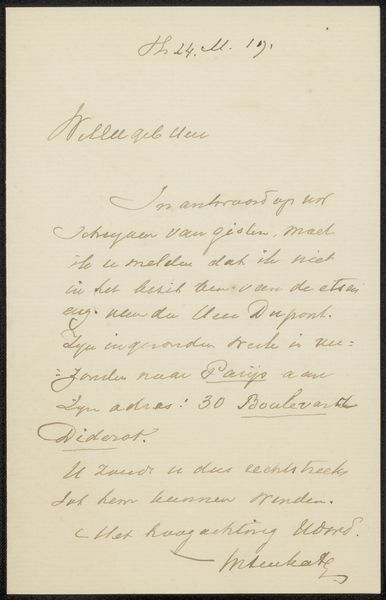 24. M. 19.
WelEdelgeb Heer
In antwoord op uw
schrijven van gisten, moet
ik u melden dat ik niet
in het bezit ben van de etsen
van den Heer Dupont.
Zijn ingezonden werk is ver-
zonden naar Parijs aan
Zijn adres: 30 Boulevard
Diderot.
U zoudt u dus rechtstreeks
tot hem kunnen wenden.
Met hoogachting UEd